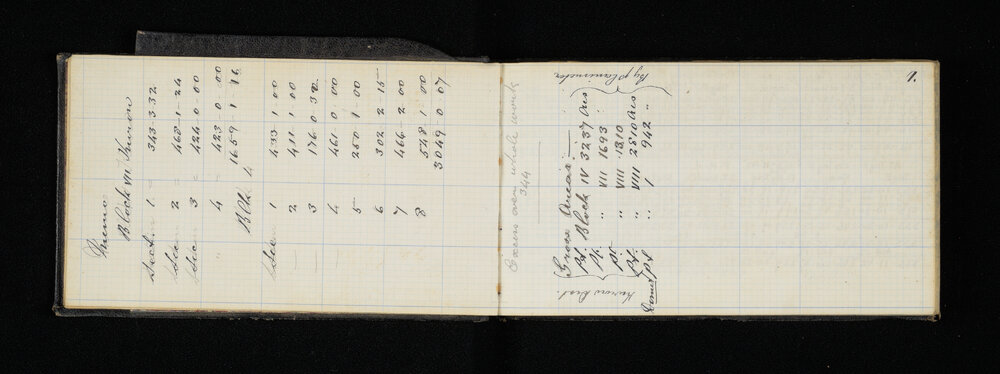 Memo
Block VII Kurow
Sect. 1 = 343-3-32
2 = 468-1-24
3 = 424-0-00
4 = 423-0-00
1659-1-16
Blk. 4
Sec 1 433 1 00
2 411 1 00
3 176 0 32
4 461 0 00
5 250 1 00
6 302 2 15
7 466 2 00
8 548 1 00
3049 0 07
1.
Excess over whole work
344
Gross Areas
Kurow Dist. Pt Block IV 3237 Acs By Planimeter
Pt. " VII 1693 "
Pt " VIII 1310
Pt. " VIII 2810 Acs
Pt " 1 942 "